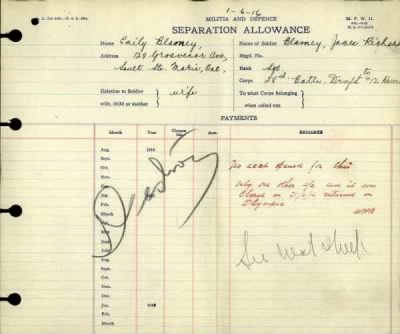 1-6-16
MILITIA AND DEFENCE
M. F. W. 11.
SEPARATION ALLOWANCE
Name Emily Blamey,
Name of Soldier Blamey, James Richard
Address 129 Grosvenor Ave,
Regtl. No.
Sault Ste. Marie, Ont,
Rank Sgt
Corps 58th Battn. Draft to
Relation to Soldier
wife, child or mother
wife
To what Corps belonging
when called out
PAYMENTS
Month
Year
Cheque No.
Amt.
REMARKS
Aug. 1914
Sept.
Oct.
Nov.
Dec.
Jan.
Feb.
March
April
May
June
July
Aug.
Sept.
Oct.
Nov.
Dec.
Jan. 1916
Feb.
March
No acct opened for this
only one other a/c and it was
closed on returned on
Olympic
See next sheet